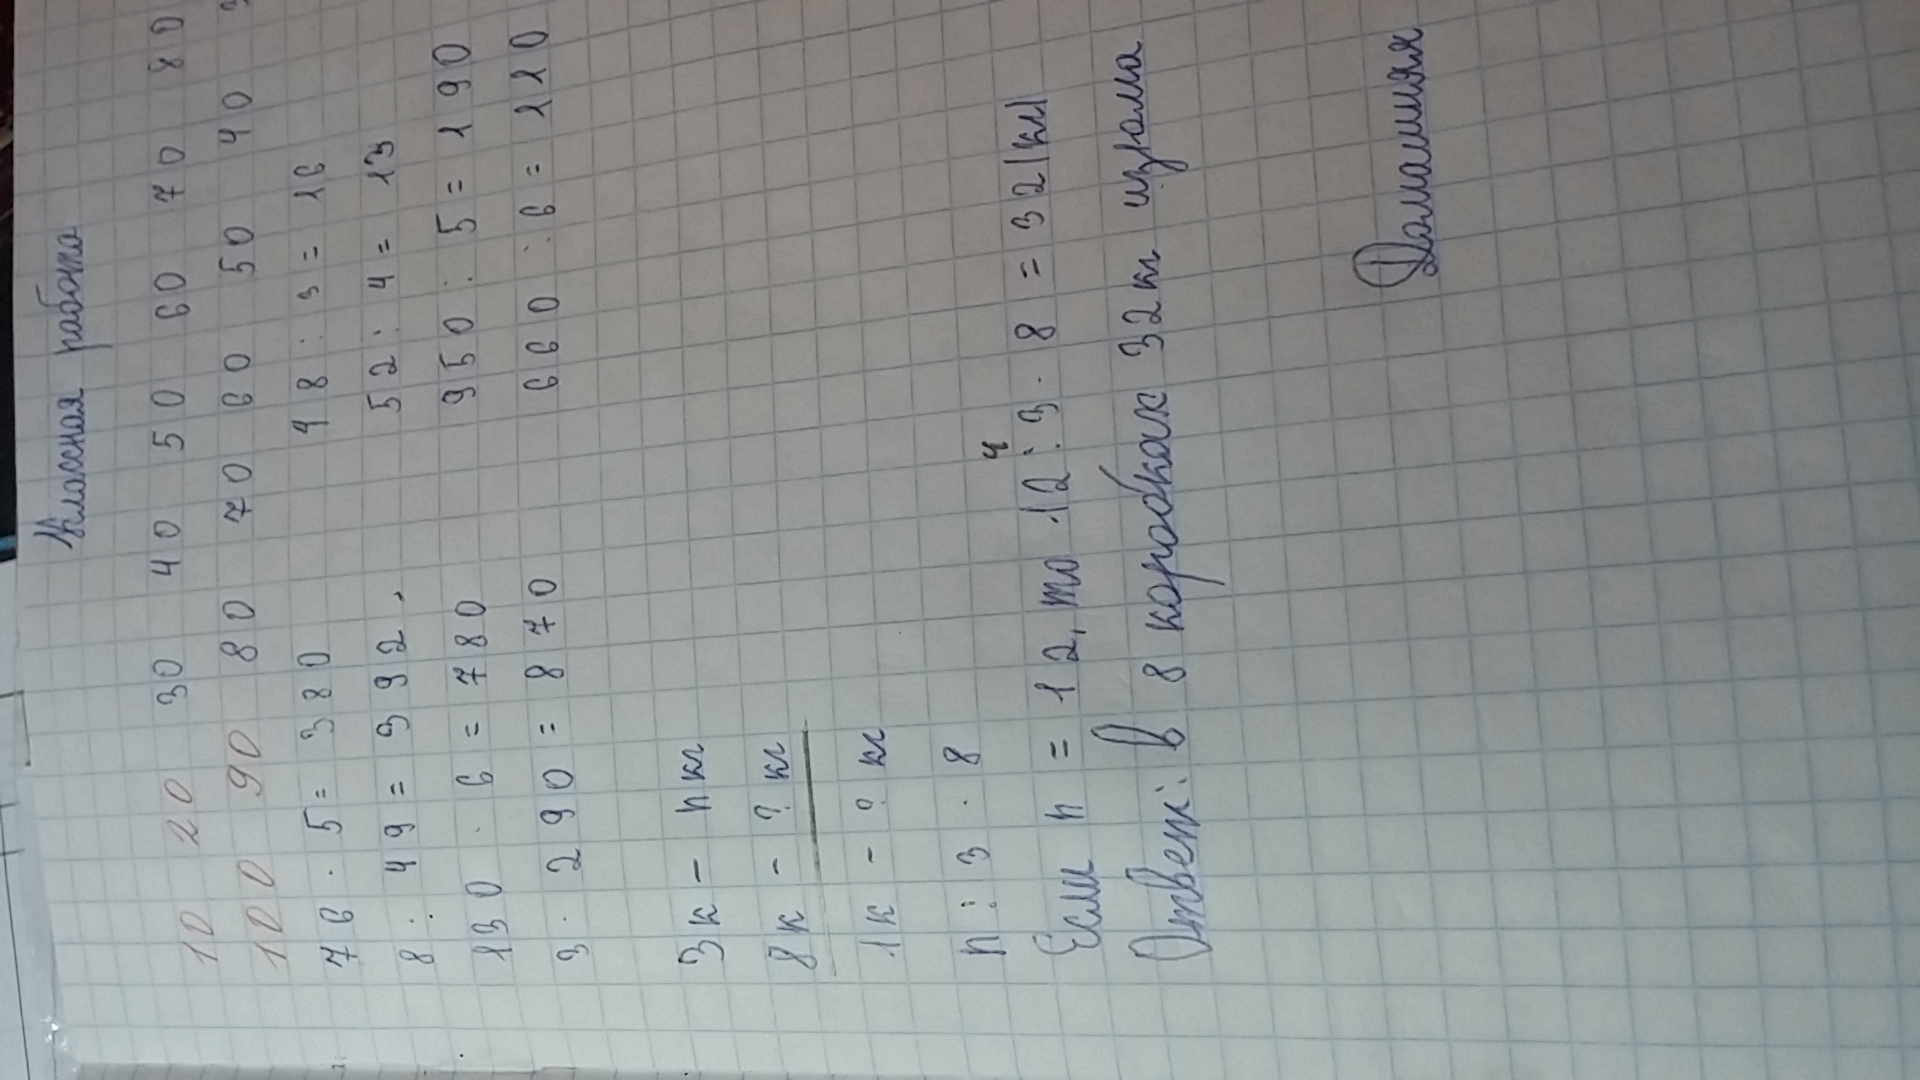 Классная работа
10 20 30 40 50 60 70 80
100 90 80 70 60 50 40 3
76 · 5 = 380 48 : 3 = 16
8 · 49 = 392 52 : 4 = 13
130 · 6 = 780 950 : 5 = 190
3 · 290 = 870 660 : 6 = 110
3к - n кг
8к - ? кг
1к - ? кг
n : 3 · 8
Если n = 12, то 12 : 3 · 8 = 32 (кг)
4
Ответ: в 8 коробках 32 кг изюма
Домашняя